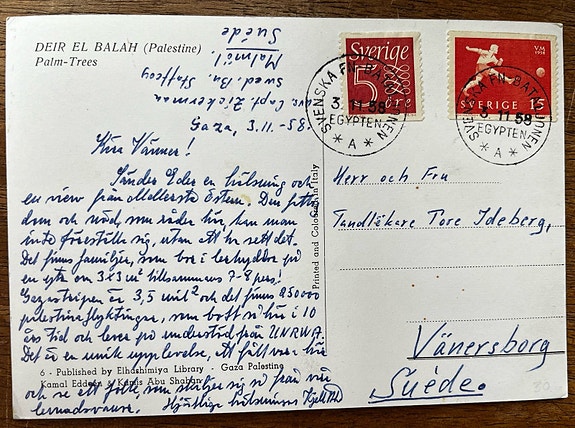 DEIR EL BALAH (Palestine)
Palm-Trees
Capt Zickerman
Swed. Ba. Staffcoy
Malmö 1.
Suède
Gaza, 3.11.-58.
Kära Vänner!
Sänder Eder en hälsning och
en view från Mellersta Östern. Den fattig
dom och nöd, som råder här, kan man
inte föreställa sig, utan att ha sett det.
Det finns familjer, som bor i lerhyddor på
en yta om 3x3 m² tillsammans 7-8 pers!
Gazastripen är 3,5 mil² och det finns 250000
palestinaflyktingar, som bott så här i 10
års tid och lever på understöd från UNRWA.
Det är en unik upplevelse, att få vara här
och se ett folk, som skiljer sig så från våra
levnadsvanor. Hjärtliga hälsningar Kjell
6 - Published by Elhashimiya Library - Gaza Palestine
Kamal Eddean & Kamis Abu Shaban
Printed and Coloured in Italy
Sverige
5 öre
VM
1958
SVERIGE 15
SVENSKA FN-BATALJONEN
3.11.58
EGYPTEN
* A *
SVENSKA FN-BATALJONEN
3.11.58
EGYPTEN
* A *
Herr och Fru
Tandläkare Tore Ideberg,
Vänersborg
Suéde.